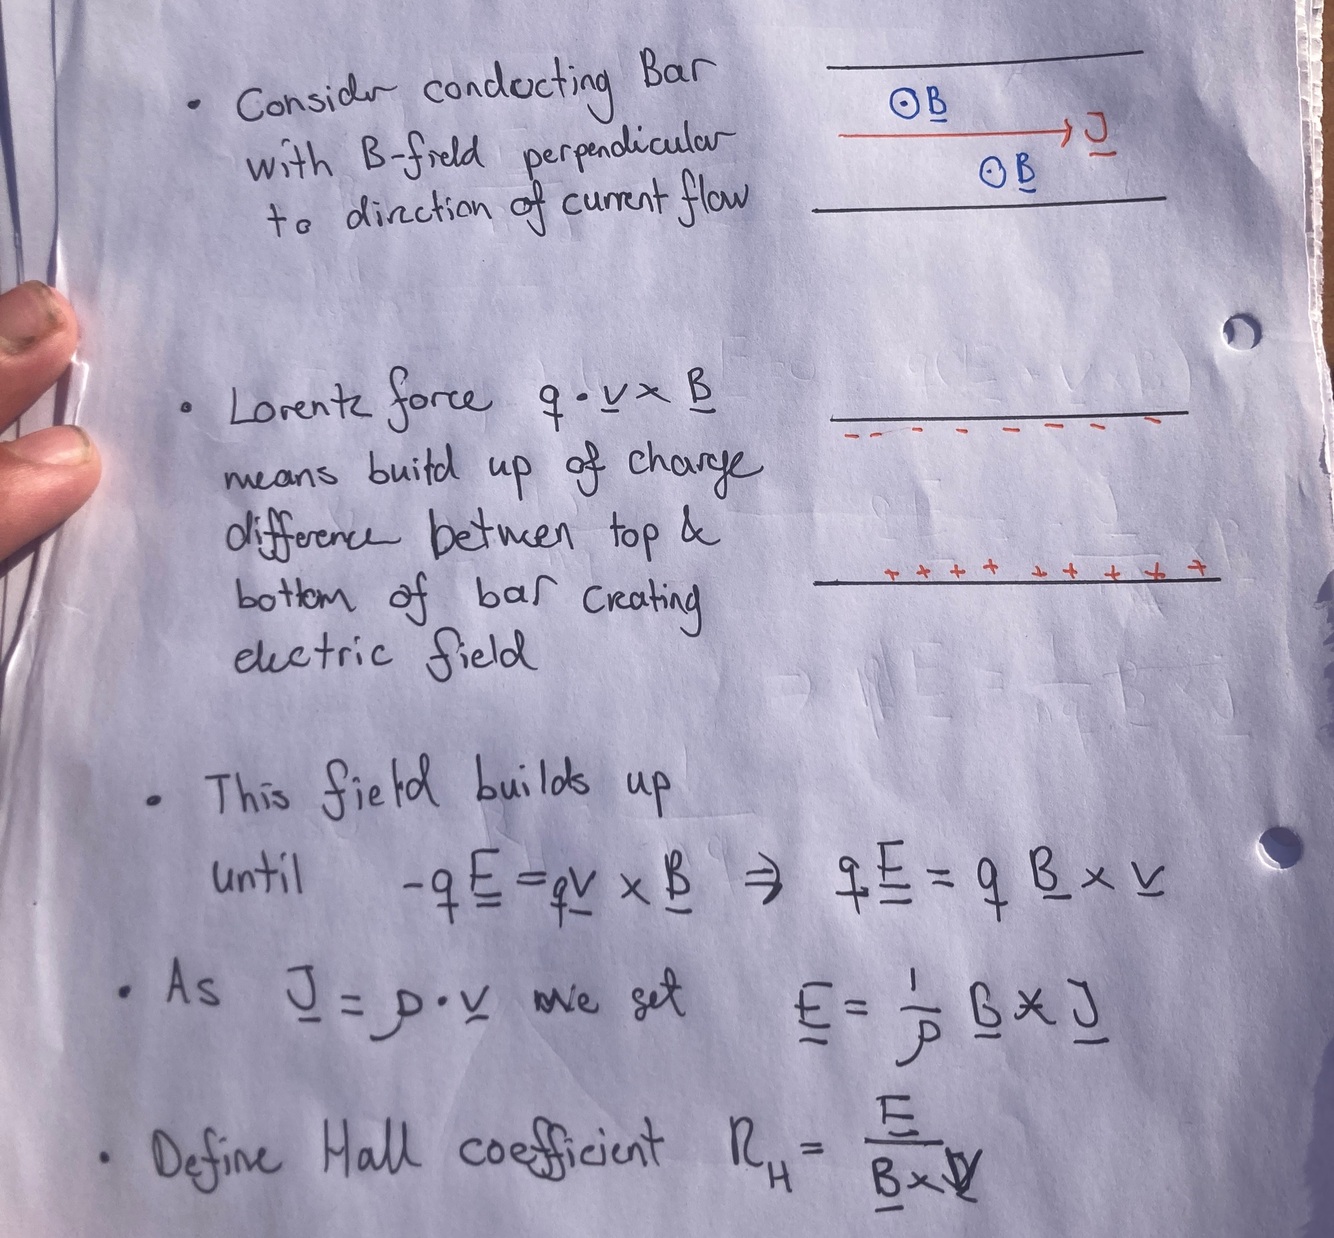 • Consider conducting Bar
with B-field perpendicular
to direction of current flow
⊙ B
J
⊙ B
• Lorentz force q · v × B
means build up of charge
difference between top &
bottom of bar creating
electric field
- - - - - - - -
+ + + + + + + + +
• This field builds up
until -qE = qv × B ⇒ qE = q B × v
• As J = ρ · v we get E = 1/ρ B × J
• Define Hall coefficient R_H = E / B ×